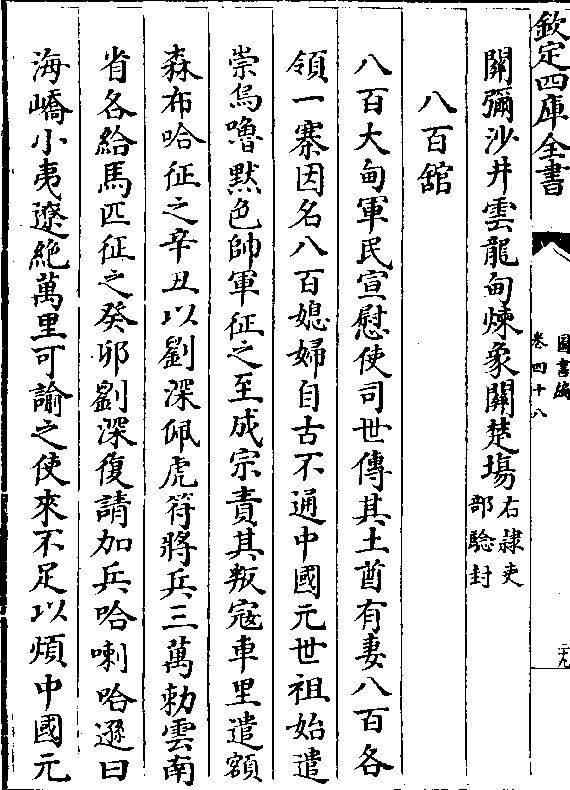 欽定四庫全書
圖書編
卷四十八
二九
關彌沙井雲龍甸煉象關楚塲右隷吏部騐封
八百舘
八百大甸軍民宣慰使司世傳其土酋有妻八百各
領一寨因名八百媳婦自古不通中國元世祖始遣
崇烏嚕黙色帥軍征之至成宗責其叛寇車里遣額
森布哈征之辛丑以劉深佩虎符將兵三萬勅雲南
省各給馬匹征之癸卯劉深復請加兵哈喇哈遜曰
海嶠小夷遼絶萬里可諭之使來不足以煩中國元